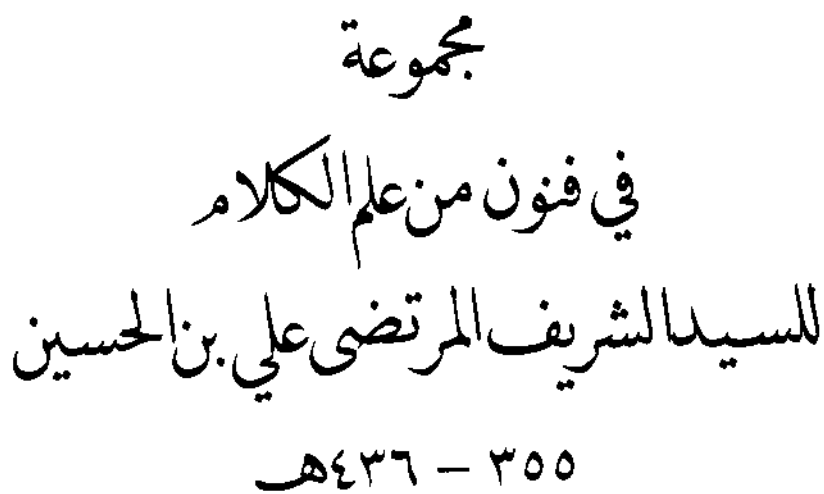 مجموعة
في فنون من علم الكلام
للسيد الشريف المرتضى علي بن الحسين
٣٥٥ – ٤٣٦هـ